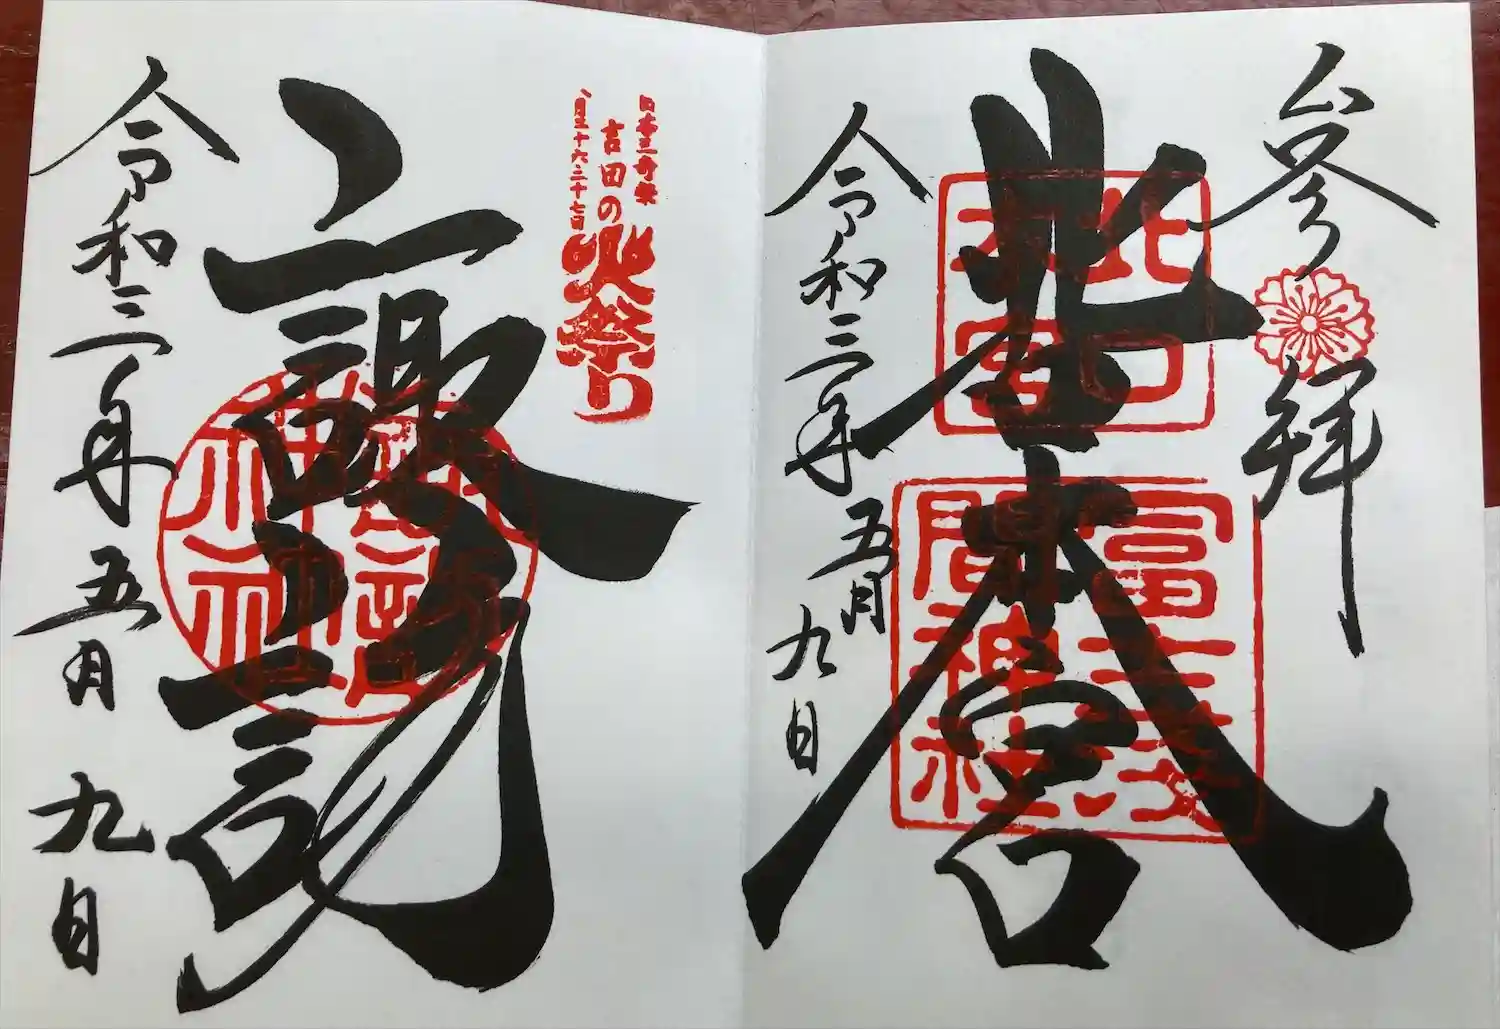 參拜
北口本宮
北口本宮
冨士浅間神社
令和三年五月九日
日本三奇祭
吉田の火祭り
八月二十六・二十七日
諏訪
諏訪神社
令和三年五月九日